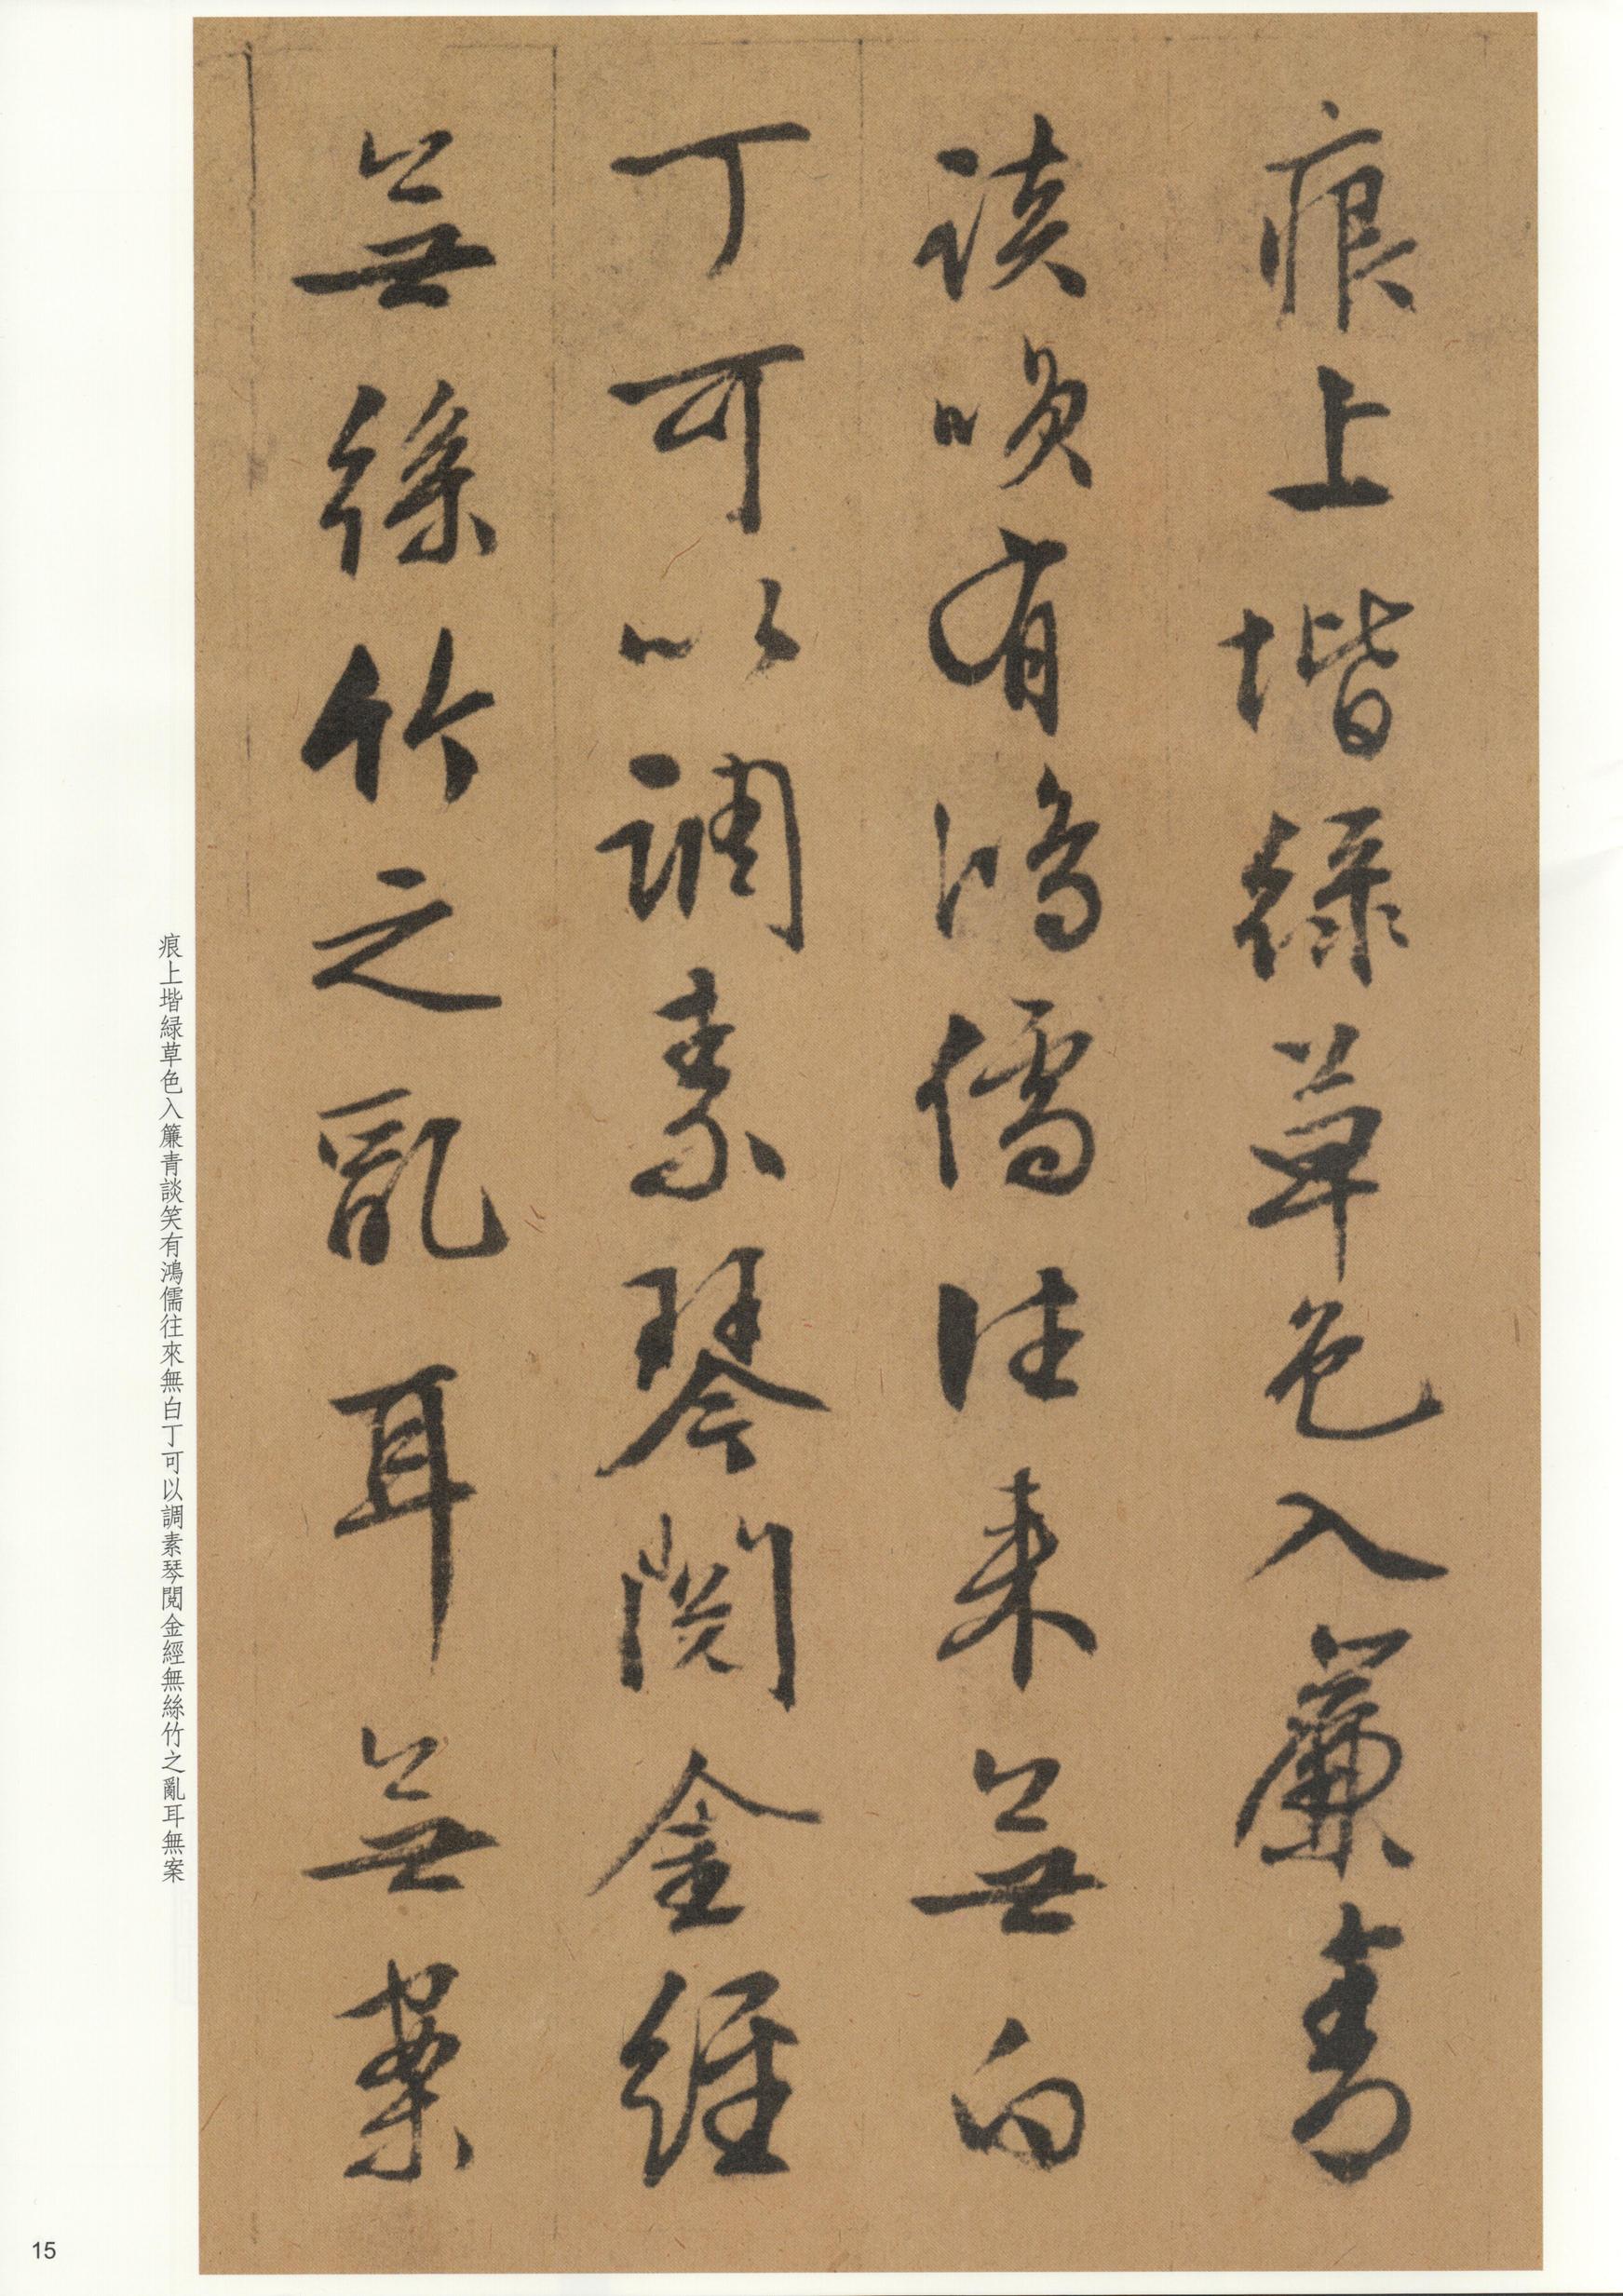 痕上堦緑草色入簾青
談笑有鴻儒往來無白
丁可以調素琴閱金經
無絲竹之亂耳無案
痕上堦緑草色入簾青談笑有鴻儒往來無白丁可以調素琴閱金經無絲竹之亂耳無案
15